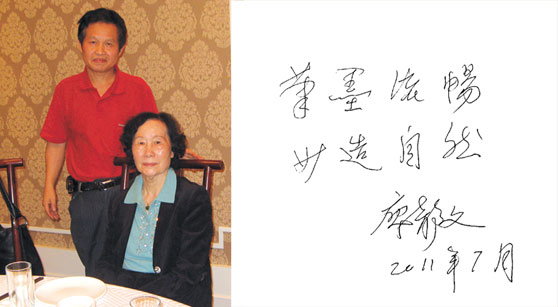 筆墨流暢
妙造自然
廖静文
2011年7月